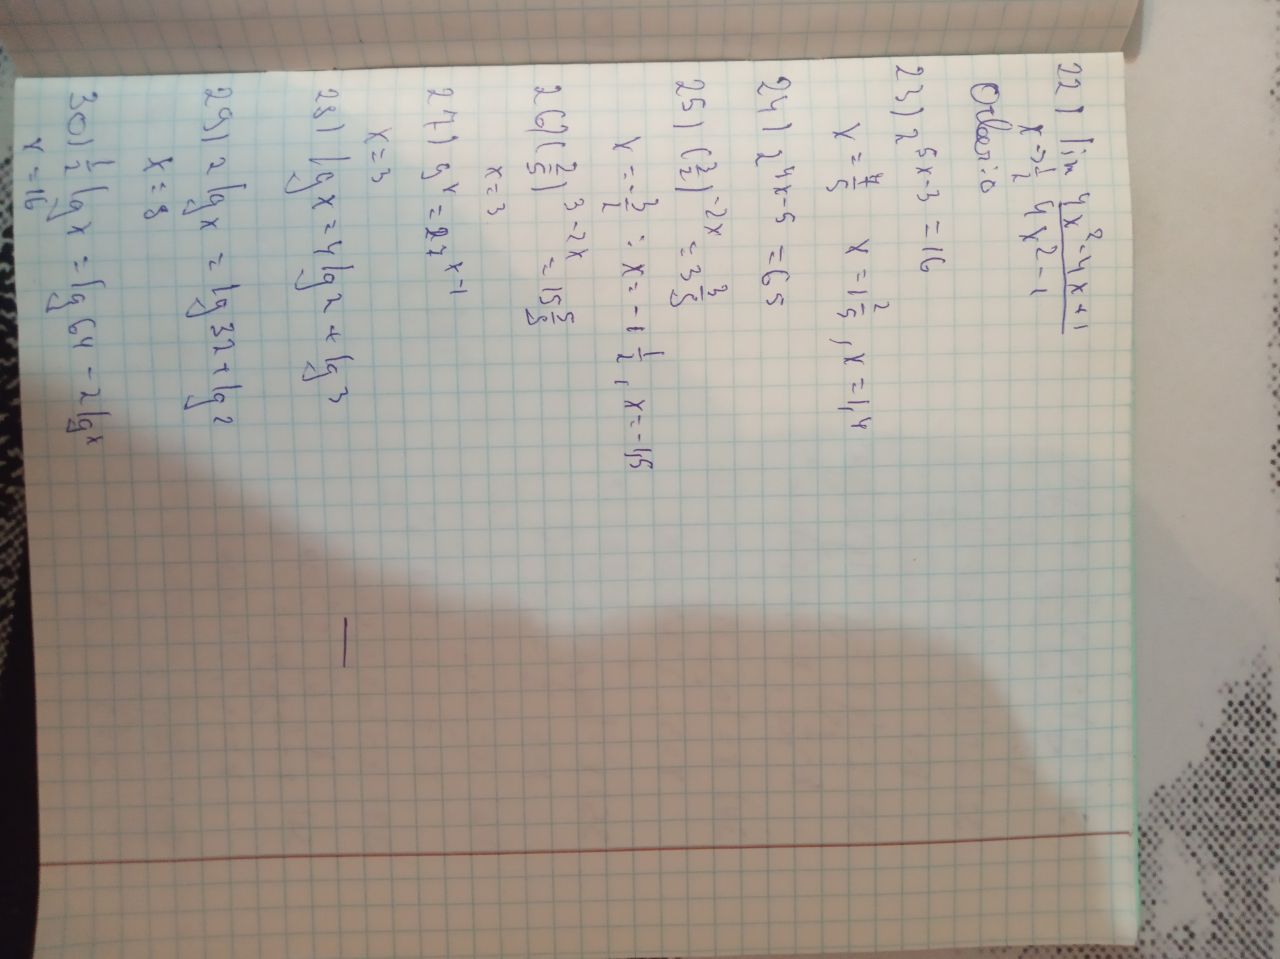 22) lim 4x²-4x+1
x→1/2 4x²-1
Ответ: 0
23) 2^(5x-3) = 16
x = 7/5 x = 1 2/5, x = 1,4
24) 2^(4x-5) = 65
25) (3/2)^(-2x) = 3 3/8
x = -3/2 : x = -1 1/2, x = -1,5
26) (2/5)^(3-2x) = 15 5/8
x = 3
27) 9^x = 27^(x-1)
x = 3
28) lg x = 4 lg 2 + lg 3
29) 2 lg x = lg 32 + lg 2
x = 8
30) 1/2 lg x = lg 64 - 2 lg x
x = 16